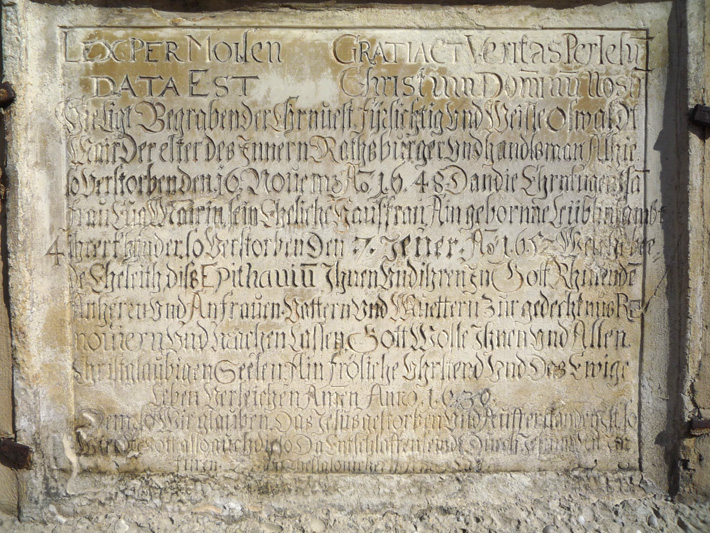 LEX PER MOISEN GRATIA ET Veritas Per Iesū
DATA EST Christum Dominū Nostr
Hie Ligt Begraben der Ehrnuest Fürsichtig Vnd Weisse Oswaldt
Mair Der elter des Innern Raths burger Vnd handlsman Alhie
so Verstorben den 16. Nouemb Aō 1648 Dan die Ehrntugentsā
frau Mairin sein Eheliche hausfrau Ain geborhne
4 ihrer khinder so Verstorben Den 7. Jener. Aō 165 Welche bee-
de Eheleith diss Epithauiū Ihnen Vnd ihren in Gott Rhuende
Anheren Vnd Anfrauen Vattern Vnd Muettern zur gedechtnus Re
nouiern Vnd Machen Lassen Gott Wolle Ihnen Vnd Allen
Christglaubigen Seelen Ain Fröliche Vhrsterd Vnd Des Ewige
Leben Verleichen Amen Anno
Denn so Wir glauben Das Jesus gestorben Vnd Aufferstanden ist so
Wird Gott also auch die so Da Entschlaffen seindt durch Jesum Mit
füren